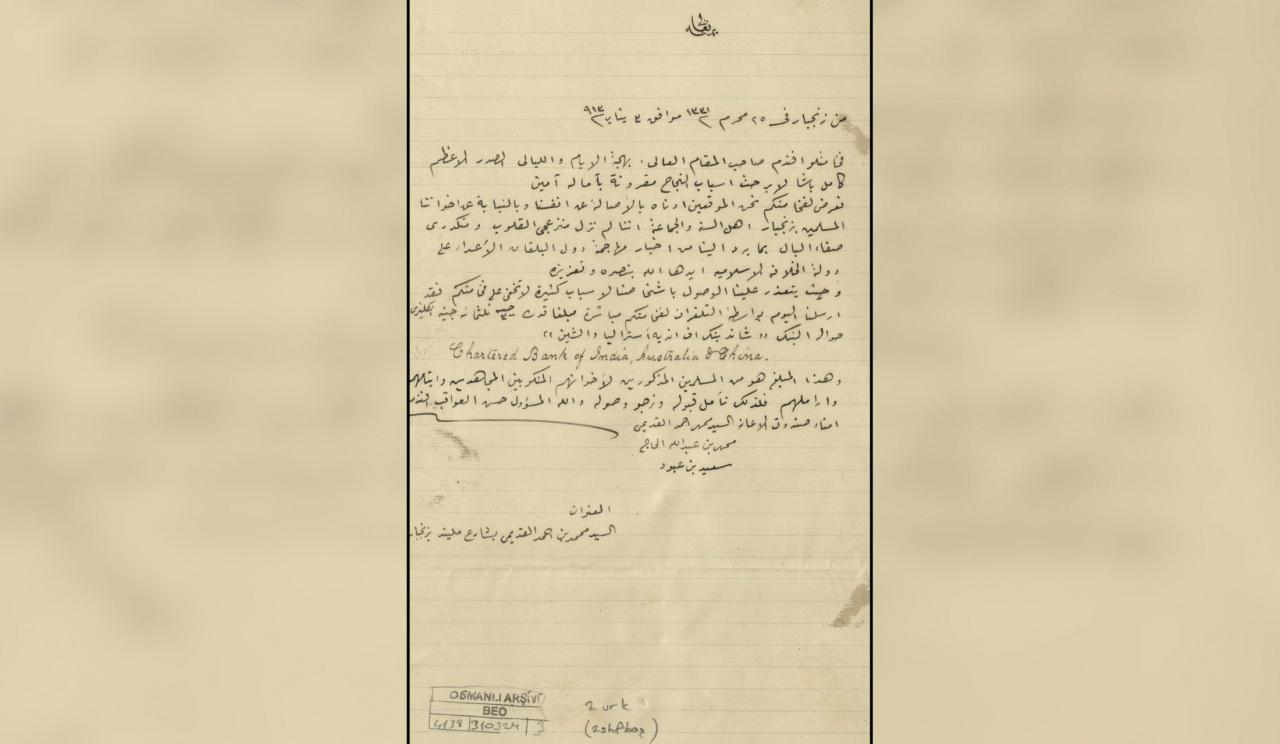 من زنجبار فى ٢٥ محرم ١٣٣١ موافق ٣ يناير ٩١٣
فخامتلو افندم صاحب المقام العالى بهجة الايام والليالى الصدر الاعظم
كامل باشا لابرحت اسباب النجاح مقرونة بآماله آمين
نعرض لفخامتكم نحن الموقعين ادناه بالاصالة عن انفسنا وبالنيابة عن اخواننا
المسلمين بزنجبار اهل السنة والجماعة اننا لم نزل منزعجى القلوب ومتكدرى
صفاء البال بما يرد الينا من اخبار مهاجمة دول البلقان الأعداء على
دولة الخلافة الاسلامية ايدها الله بنصره وتعزيزه
وحيث يتعذر علينا الوصول باشخاصنا لاسباب كثيرة لا تخفى على فخامتكم فقد
ارسلنا اليوم بواسطة التلغراف لفخامتكم مباشرة مبلغا قدره ثلثمائة جنيه انكليزى
حوالة البنك ,, شاتد بنك اف انديه أستراليا والشين ,,
Chartered Bank of India, Australia & China.
وهذا المبلغ هو من المسلمين المذكورين لأخوانهم المنكوبين المجاهدين وايتامهم
واراملهم فلذلك نأمل قبوله ونرجو وصوله والله المسؤول حسن العواقب
امناء صندوق الاعانة السيد محمد احمد القديمى
محمد بن عبدالله الحاج
سعيد بن عبود
العنوان
السيد محمد بن احمد القديمى بشارع مليند بزنجبار
OSMANLI ARŞİVİ
BEO
4138 310324 3
2 vrk